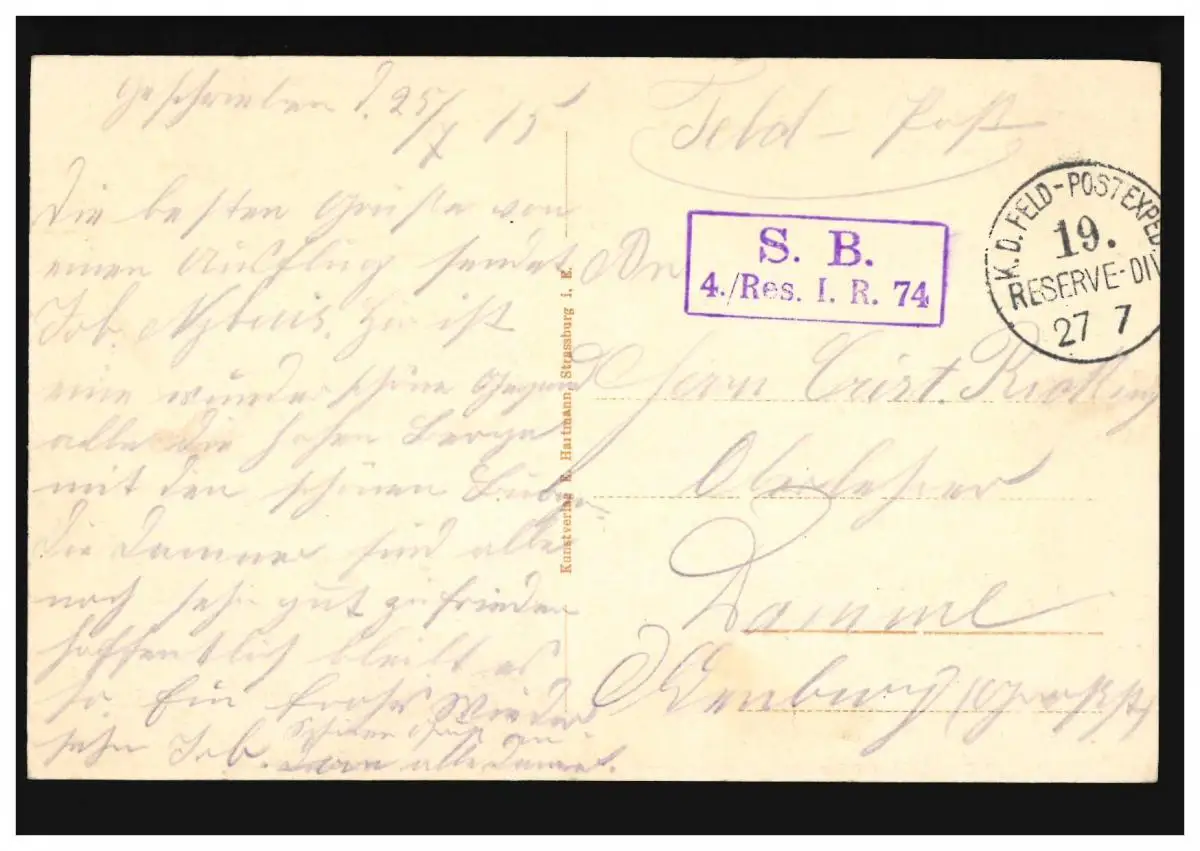 Geschrieben d. 25/7 15
Die besten Grüße von
einen Ausflug sendet
Joh. Hier ist
eine wunder schöne Gegend
alle die hohen Berge
mit den schönen
Die Dammer sind alle
noch sehr gut zufrieden
hoffentlich bleibt es
so Ein frohes Wieder
sehn Joh.
Schönen Gruß an
alle Damme.
Kunstverlag E. Hartmann, Strassburg i. E.
Feld-Post
S. B.
4./Res. I. R. 74
K. D. FELD-POSTEXPED.
19.
RESERVE-DIV
27 7
An
Herrn
Oberlehrer
Damme
Oldenburg (Großh)